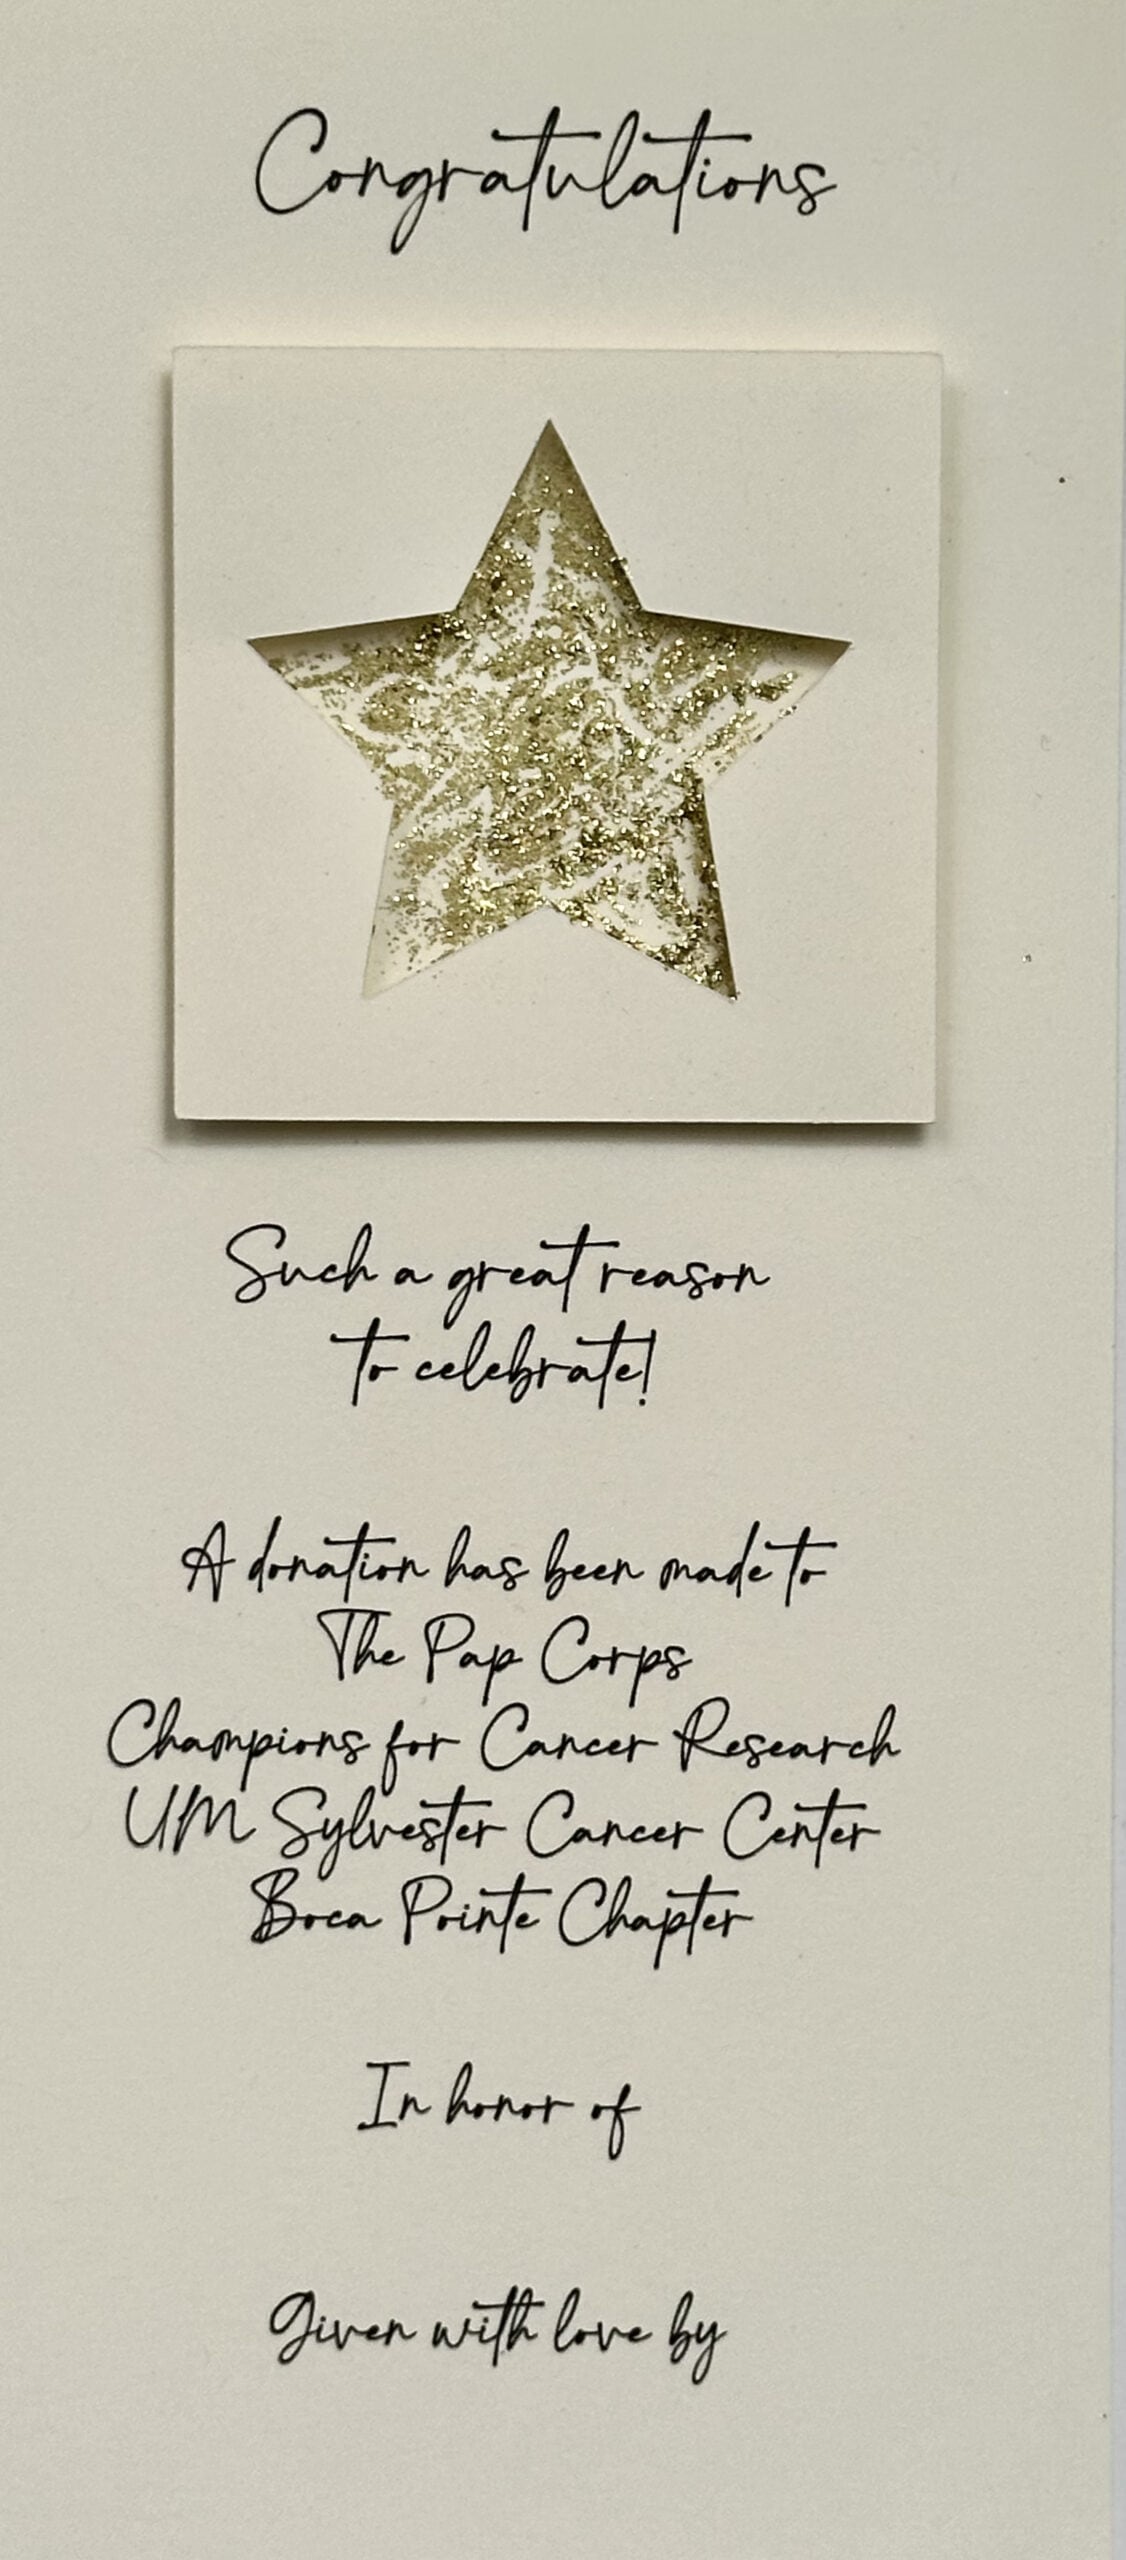 Congratulations
Such a great reason
to celebrate!
A donation has been made to
The Pap Corps
Champions for Cancer Research
UM Sylvester Cancer Center
Boca Pointe Chapter
In honor of
Given with love by